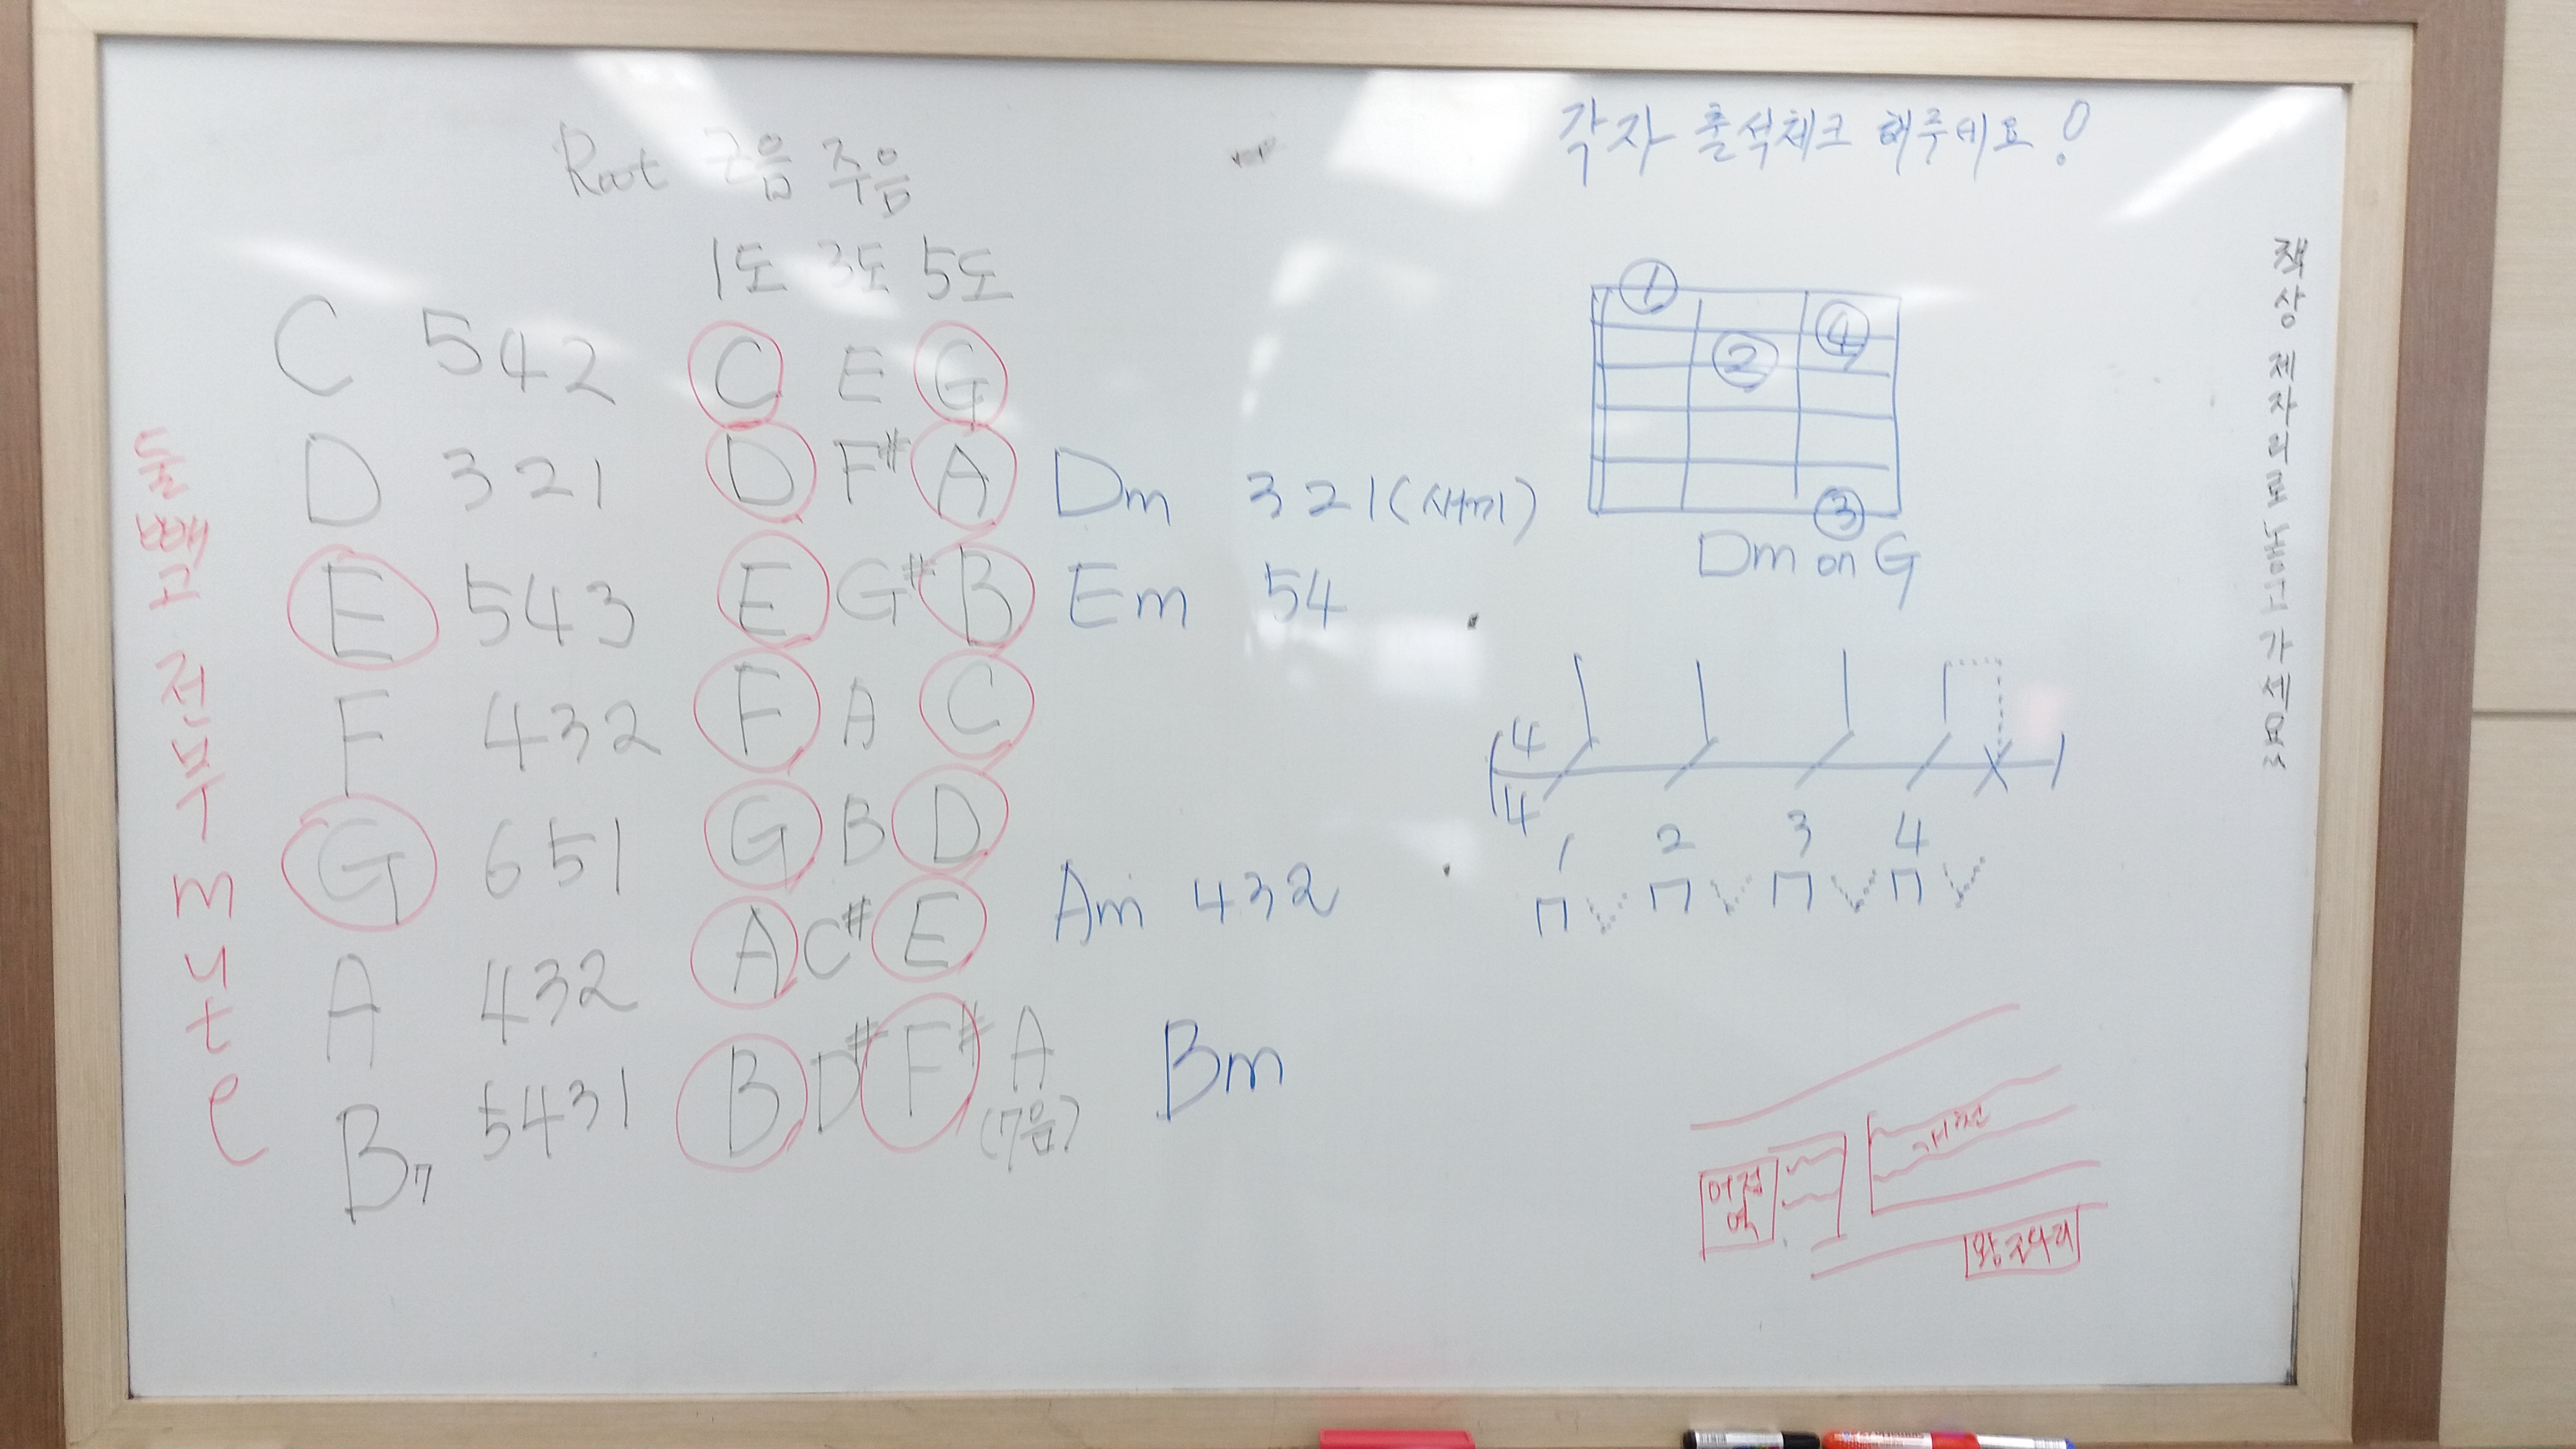 Root 근음 주음
1도 3도 5도
C 542 C E G
D 321 D F# A Dm 321(새끼)
E 543 E G# B Em 54
F 432 F A C
G 651 G B D
A 432 A C# E Am 432
B7 5431 B D# F# A Bm
(7음)
둘 빼고 전부 mute
각자 출석체크 해주세요!
1
4
2
3
Dm on G
4
4
1 2 3 4
책상 제자리로 놓고 가세요